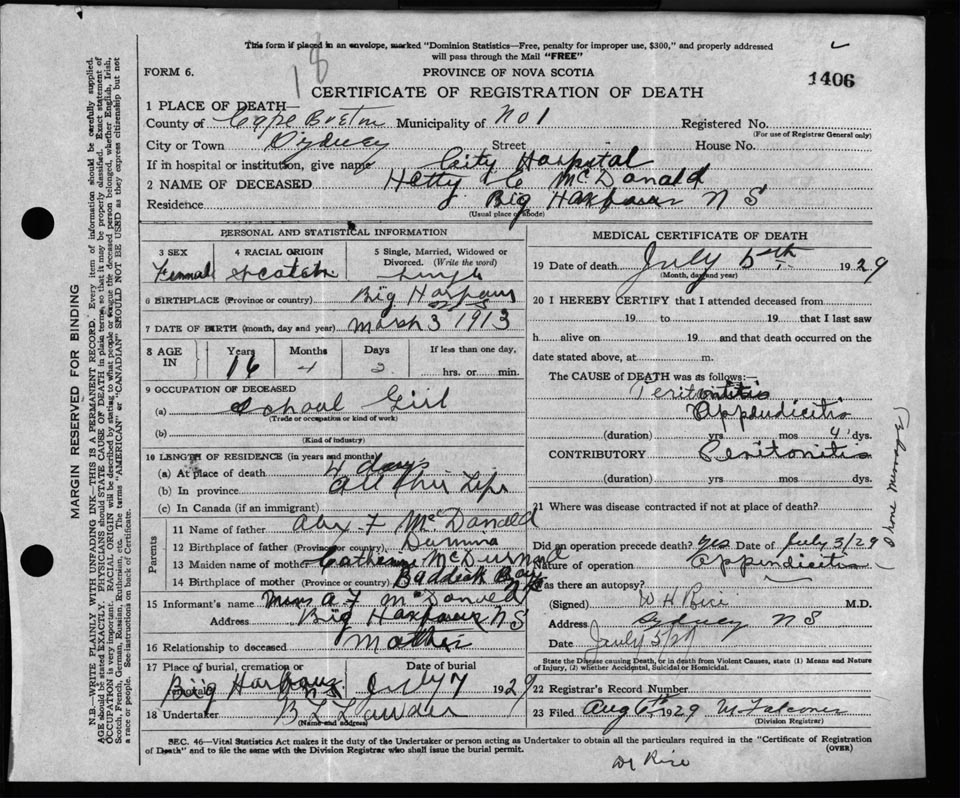 This form if placed in an envelope, marked "Dominion Statistics—Free, penalty for improper use, $300," and properly addressed
will pass through the Mail "FREE"
18
FORM 6.
PROVINCE OF NOVA SCOTIA
1406
CERTIFICATE OF REGISTRATION OF DEATH
1 PLACE OF DEATH—
County of Cape Breton Municipality of No 1 Registered No.
(For use of Registrar General only)
City or Town Sydney Street House No.
If in hospital or institution, give name City Hospital
2 NAME OF DECEASED Hetty C McDonald
Residence Big Harbour N S
(Usual place of abode)
PERSONAL AND STATISTICAL INFORMATION
3 SEX Female
4 RACIAL ORIGIN Scotch
5 Single, Married, Widowed or Divorced. (Write the word) Single
6 BIRTHPLACE (Province or country) Big Harbour NS
7 DATE OF BIRTH (month, day and year) March 3 1913
8 AGE IN Years 16 Months 4 Days 2 If less than one day, hrs. or min.
9 OCCUPATION OF DECEASED
(a) School Girl
(Trade or occupation or kind of work)
(b)
(Kind of Industry)
10 LENGTH OF RESIDENCE (in years and months)
(a) At place of death 4 days
(b) In province All Life
(c) In Canada (if an immigrant)
Parents
11 Name of father Alex F McDonald
12 Birthplace of father (Province or country)
13 Maiden name of mother Catherine
14 Birthplace of mother (Province or country) Baddeck Bay NS
15 Informant's name Mrs A F McDonald
Address Big Harbour NS
16 Relationship to deceased Mother
17 Place of burial, cremation or removal Big Harbour NS Date of burial July 7 1929
18 Undertaker B L
(Name and address)
MEDICAL CERTIFICATE OF DEATH
19 Date of death July 5th 1929
(Month, day and year)
20 I HEREBY CERTIFY that I attended deceased from
19 to 19 that I last saw
h alive on 19 and that death occurred on the
date stated above, at m.
The CAUSE of DEATH was as follows:—
Peritonitis
Appendicitis
(duration) yrs mos 4 dys.
CONTRIBUTORY Peritonitis
(duration) yrs mos dys.
21 Where was disease contracted if not at place of death?
Did an operation precede death? Yes Date of July 3/29
Nature of operation Appendicitis
Was there an autopsy?
(Signed) W H Rice M.D.
Address Sydney N S
Date July 5/29
State the Disease causing Death, or in death from Violent Causes, state (1) Means and Nature
of Injury, (2) whether Accidental, Suicidal or Homicidal.
22 Registrar's Record Number
23 Filed Aug 6th 1929 M Falconer
(Division Registrar)
SEC. 46—Vital Statistics Act makes it the duty of the Undertaker or person acting as Undertaker to obtain all the particulars required in the "Certificate of Registration
of Death" and to file the same with the Division Registrar who shall issue the burial permit.
(OVER)
Dr Rice
MARGIN RESERVED FOR BINDING
N.B.—WRITE PLAINLY WITH UNFADING INK—THIS IS A PERMANENT RECORD. Every item of information should be carefully supplied.
AGE should be stated EXACTLY. PHYSICIANS should STATE CAUSE OF DEATH in plain terms, so that it may be properly classified. Exact statement of
OCCUPATION is very important. RACIAL ORIGIN will be described by stating to what people or the deceased person belonged, whether English, Irish,
Scotch, French, German, Russian, Ruthenian, etc. The terms "AMERICAN" or "CANADIAN" SHOULD NOT BE USED as they express citizenship but not
a race or people. See instructions on back of Certificate.